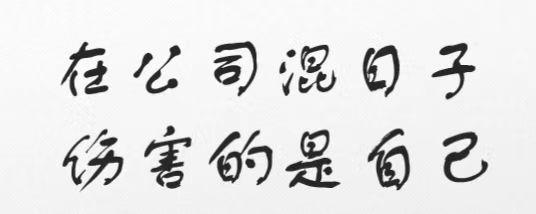 在公司混日子
伤害的是自己